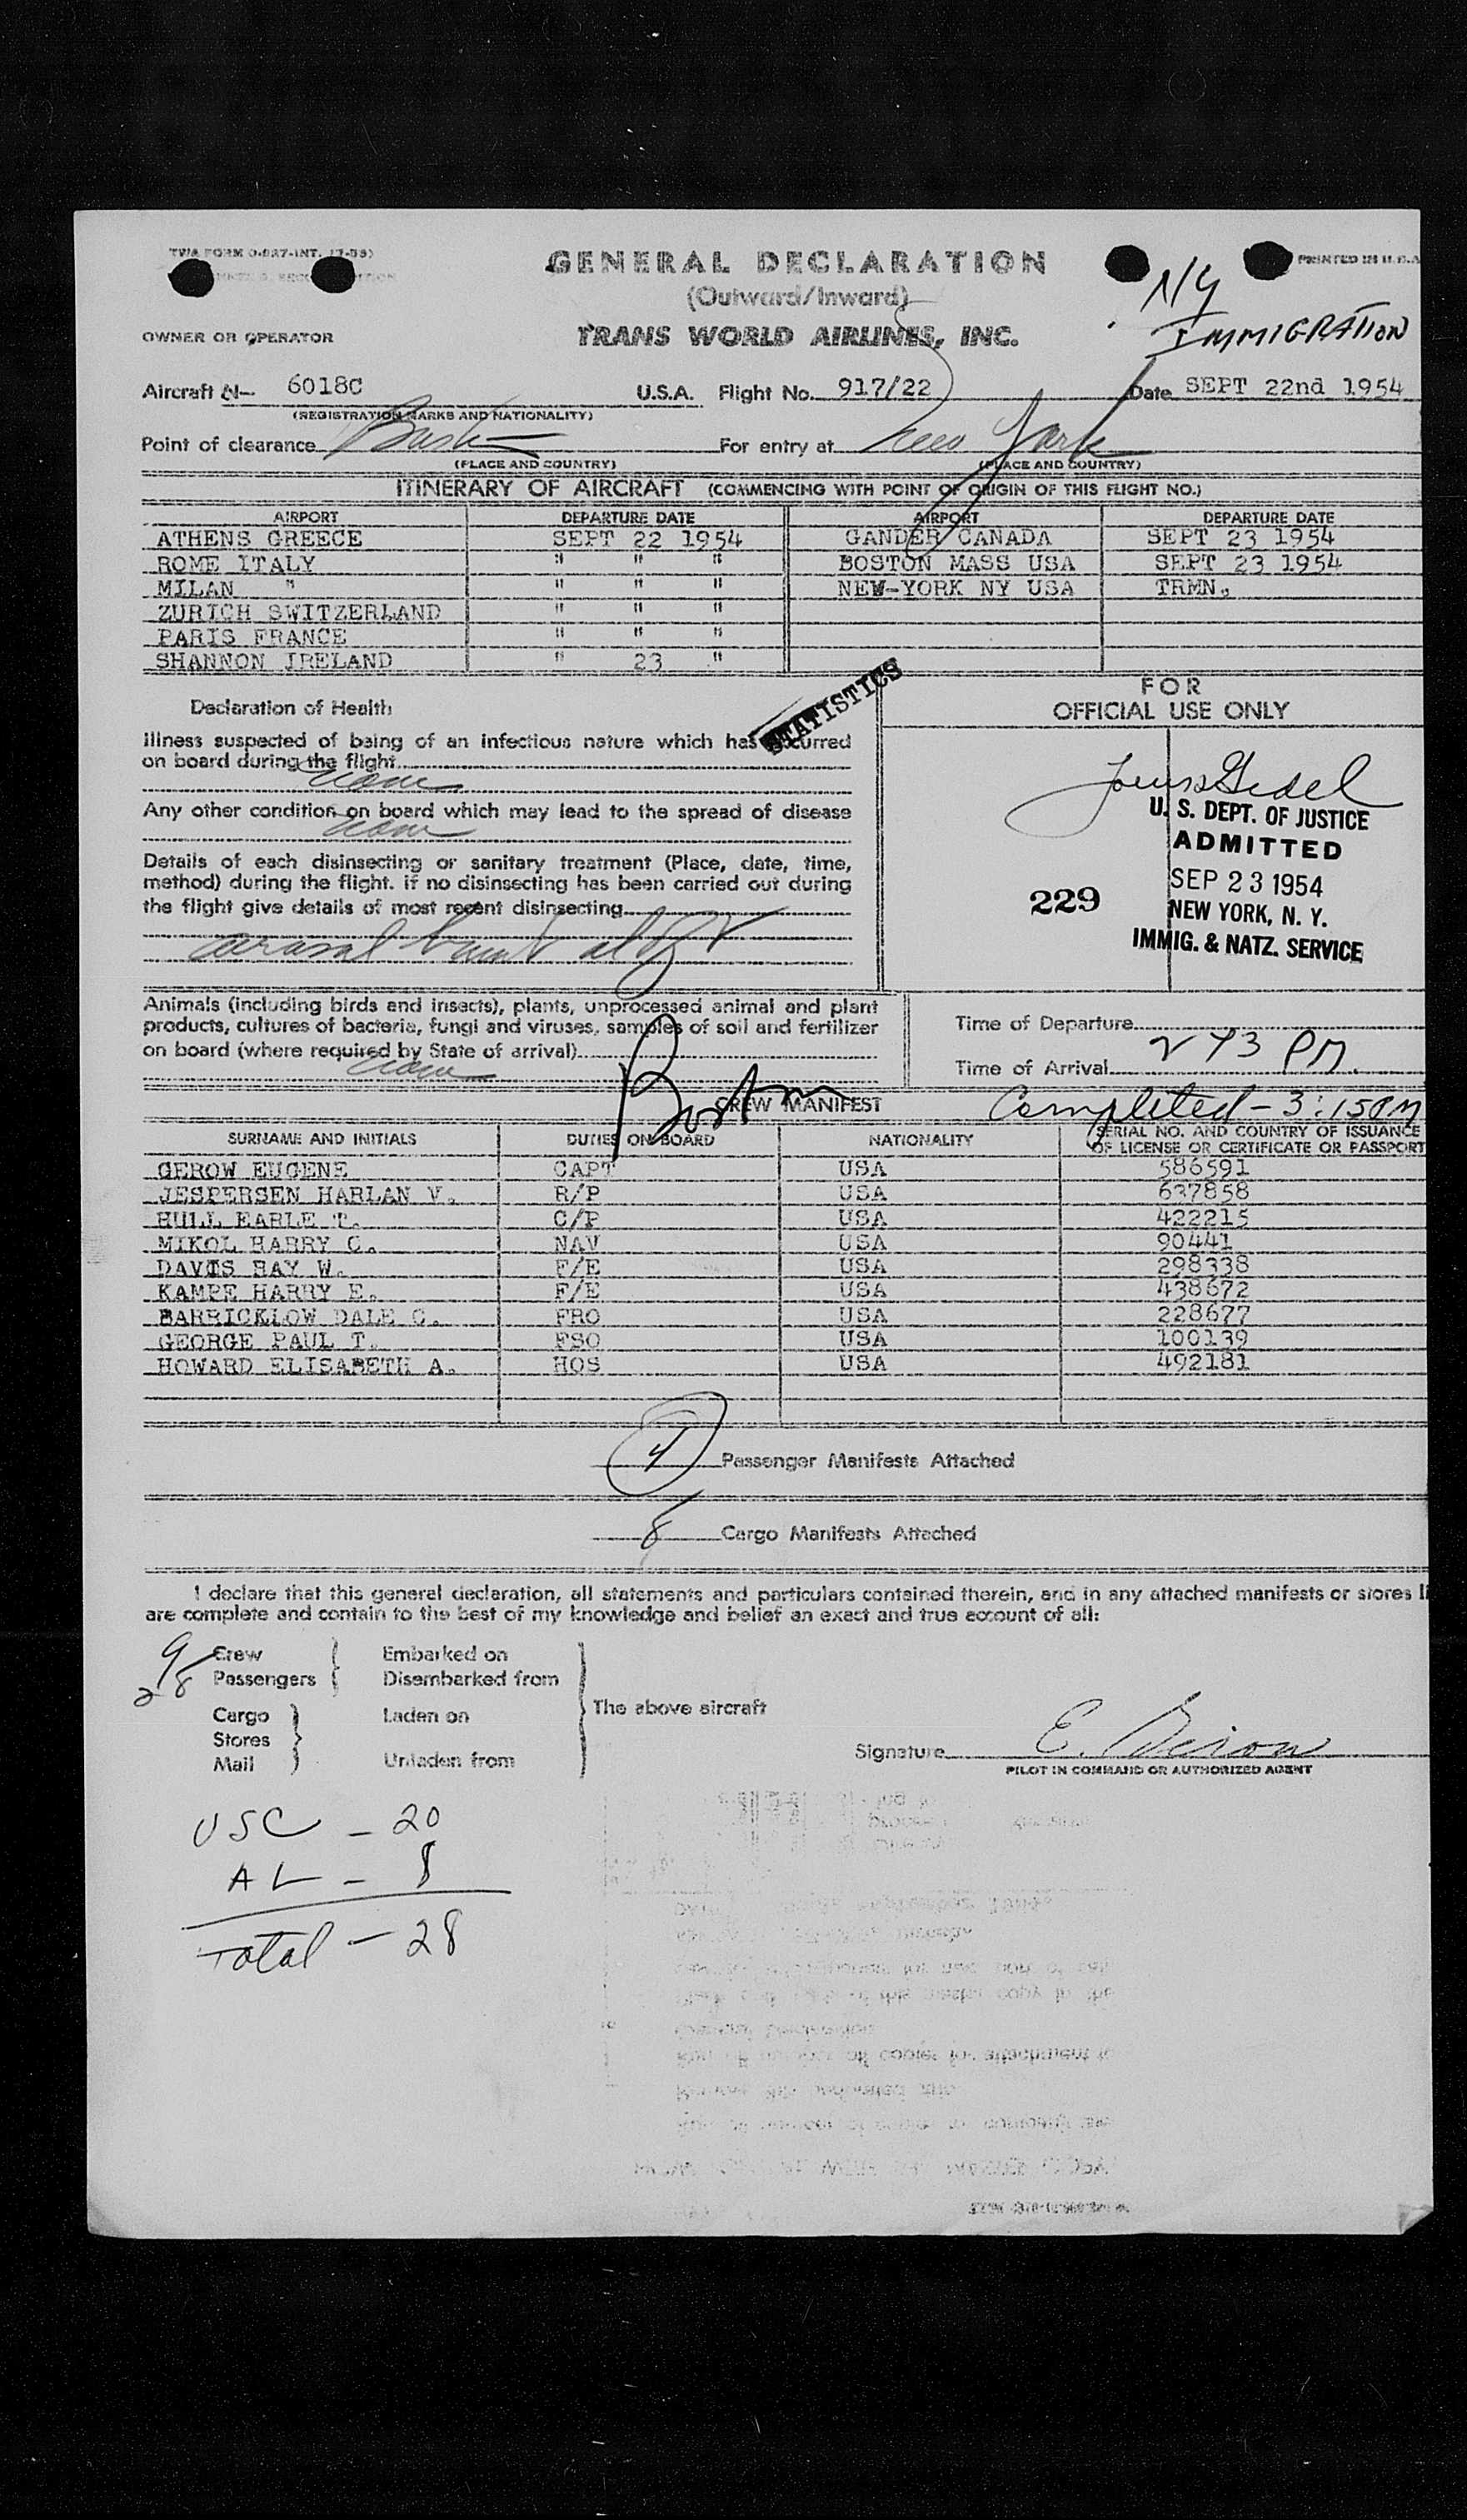 TWA FORM O-027-INT.
PRINTED IN U.S.A
GENERAL DECLARATION
(Outward/Inward)
TRANS WORLD AIRLINES, INC.
NY
IMMIGRATION
OWNER OR OPERATOR
Aircraft N— 6018C U.S.A. Flight No. 917/22 Date SEPT 22nd 1954
(REGISTRATION MARKS AND NATIONALITY)
Point of clearance For entry at New York
(PLACE AND COUNTRY) (PLACE AND COUNTRY)
ITINERARY OF AIRCRAFT (COMMENCING WITH POINT OF ORIGIN OF THIS FLIGHT NO.)
AIRPORT DEPARTURE DATE AIRPORT DEPARTURE DATE
ATHENS GREECE SEPT 22 1954 GANDER CANADA SEPT 23 1954
ROME ITALY " " " BOSTON MASS USA SEPT 23 1954
MILAN " " " " NEW-YORK NY USA TRMN.
ZURICH SWITZERLAND " " "
PARIS FRANCE " " "
SHANNON IRELAND " 23 "
STATISTICS
FOR
OFFICIAL USE ONLY
Declaration of Health
Illness suspected of being of an infectious nature which has occurred
on board during the flight
none
Any other condition on board which may lead to the spread of disease
none
Details of each disinsecting or sanitary treatment (Place, date, time,
method) during the flight. if no disinsecting has been carried out during
the flight give details of most recent disinsecting
U. S. DEPT. OF JUSTICE
ADMITTED
229 SEP 23 1954
NEW YORK, N. Y.
IMMIG. & NATZ. SERVICE
Animals (including birds and insects), plants, unprocessed animal and plant
products, cultures of bacteria, fungi and viruses, samples of soil and fertilizer
on board (where required by State of arrival)
none
Time of Departure
Time of Arrival 243 PM.
Boston
CREW MANIFEST
Completed - 3:15PM
SURNAME AND INITIALS DUTIES ON BOARD NATIONALITY SERIAL NO. AND COUNTRY OF ISSUANCE
OF LICENSE OR CERTIFICATE OR PASSPORT
GEROW EUGENE CAPT USA 586591
JESPERSEN HARLAN V. R/P USA 637858
HULL EARLE T. C/P USA 422215
MIKOL HARRY C. NAV USA 90441
DAVIS RAY W. F/E USA 298338
KAMPE HARRY E. F/E USA 438672
BARRICKLOW DALE C. FRO USA 228677
GEORGE PAUL T. FSO USA 100139
HOWARD ELISABETH A. HOS USA 492181
4 Passenger Manifests Attached
8 Cargo Manifests Attached
I declare that this general declaration, all statements and particulars contained therein, and in any attached manifests or stores li
are complete and contain to the best of my knowledge and belief an exact and true account of all:
9 Crew Embarked on
28 Passengers Disembarked from
The above aircraft
Cargo Laden on
Stores
Mail Unladen from
Signature E. Gerow
PILOT IN COMMAND OR AUTHORIZED AGENT
USC - 20
AL - 8
Total - 28